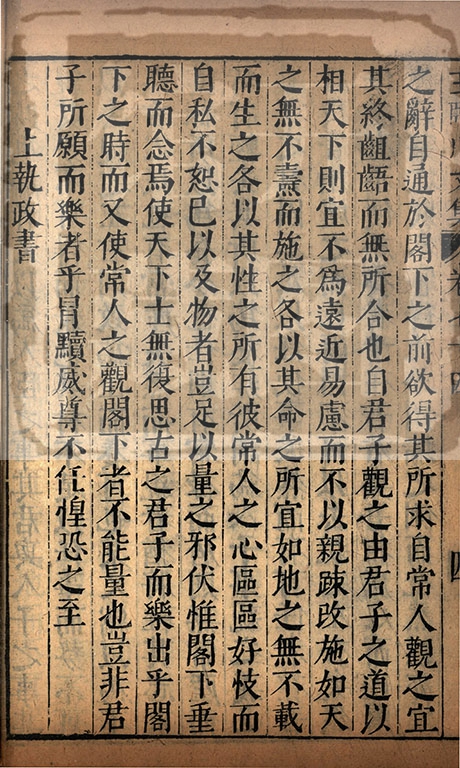 之辭自通於閣下之前欲得其所求自常人觀之宜
其終齟齬而無所合也自君子觀之由君子之道以
相天下則宜不為遠近易慮而不以親疎改施如天
之無不燾而施之各以其命之所宜如地之無不載
而生之各以其性之所有彼常人之心區區好忮而
自私不恕已以及物者豈足以量之邪伏惟閣下垂
聽而念焉使天下士無復思古之君子而樂出乎閣
下之時而又使常人之觀閣下者不能量也豈非君
子所願而樂者乎冒黷威尊不任惶恐之至
上執政書